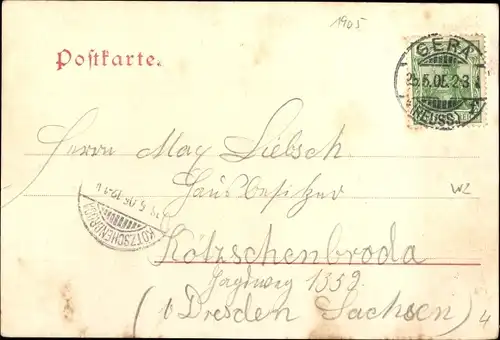 1905
Postkarte.
GERA
25.5.05. 2-3
(REUSS.)
Herrn Max Liebsch
Hausbesitzer
W2
KÖTZSCHENBRODA
5.05.12-1
Kötzschenbroda
Jagdweg 1352
(b Dresden Sachsen)
4